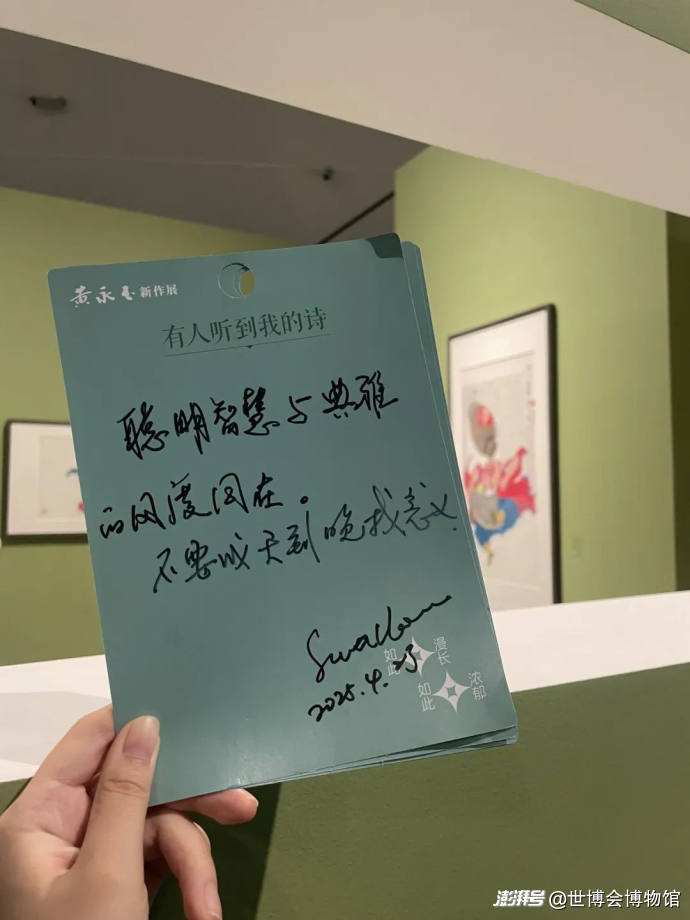 黄永玉新作展
有人听到我的诗
聪明智慧与典雅
的风度同在。
不要成天到晚找意义
Swallow
2025.4.25
如此漫长
如此浓郁
澎湃号@世博会博物馆